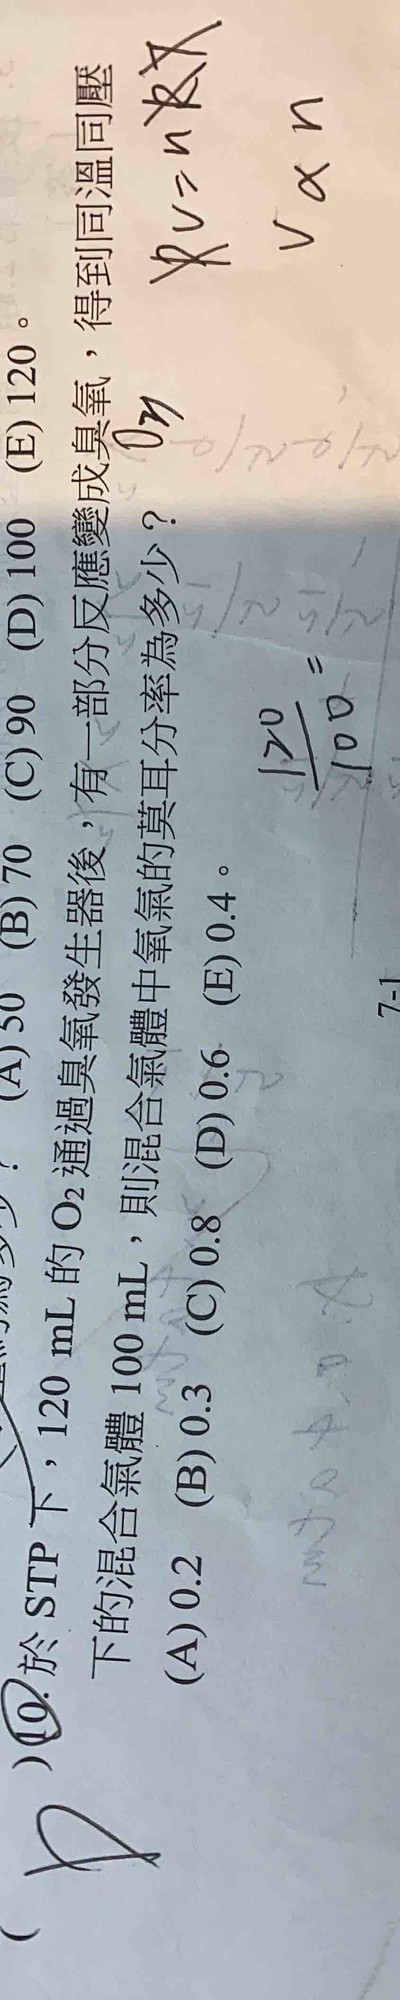 (A) 50 (B) 70 (C) 90 (D) 100 (E) 120。
( D )10. 於 STP 下，120 mL 的 O2 通過臭氧發生器後，有一部分反應變成臭氧，得到同溫同壓
下的混合氣體 100 mL，則混合氣體中氧氣的莫耳分率為多少？
(A) 0.2 (B) 0.3 (C) 0.8 (D) 0.6 (E) 0.4。
O3
PV = nRT
V ∝ n
120
100 =
7-1